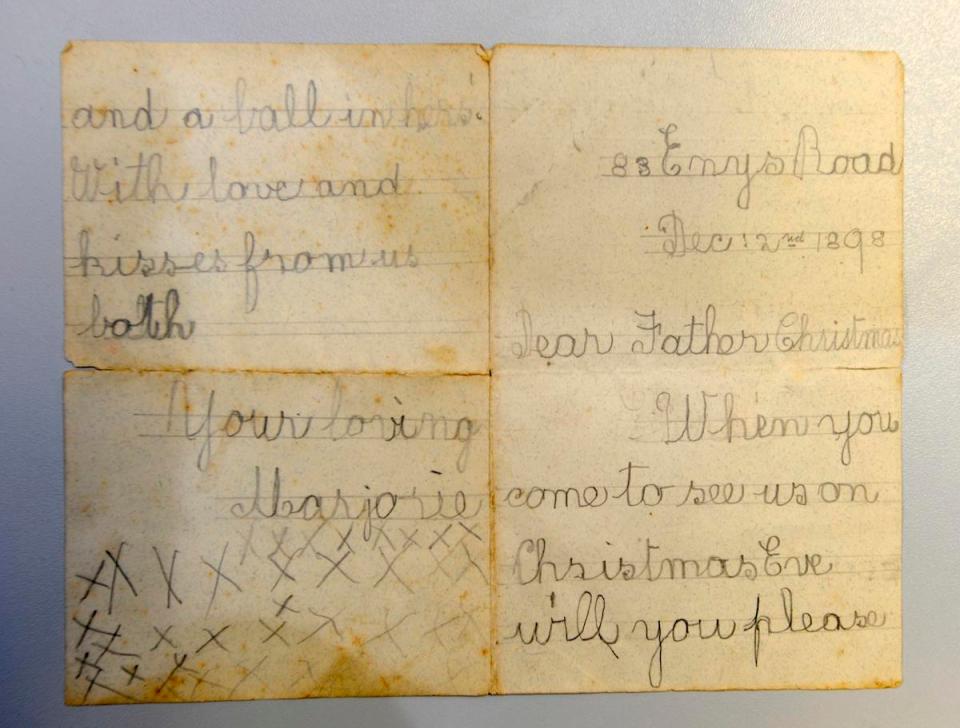 83 Enys Road
Dec: 2nd 1898
Dear Father Christmas
When you
come to see us on
Christmas Eve
will you please
and a ball in hers.
With love and
kisses from us
both
Your loving
Marjorie
X X X X X X X X
X X X X X X X X
X X X X X X X X
X X X